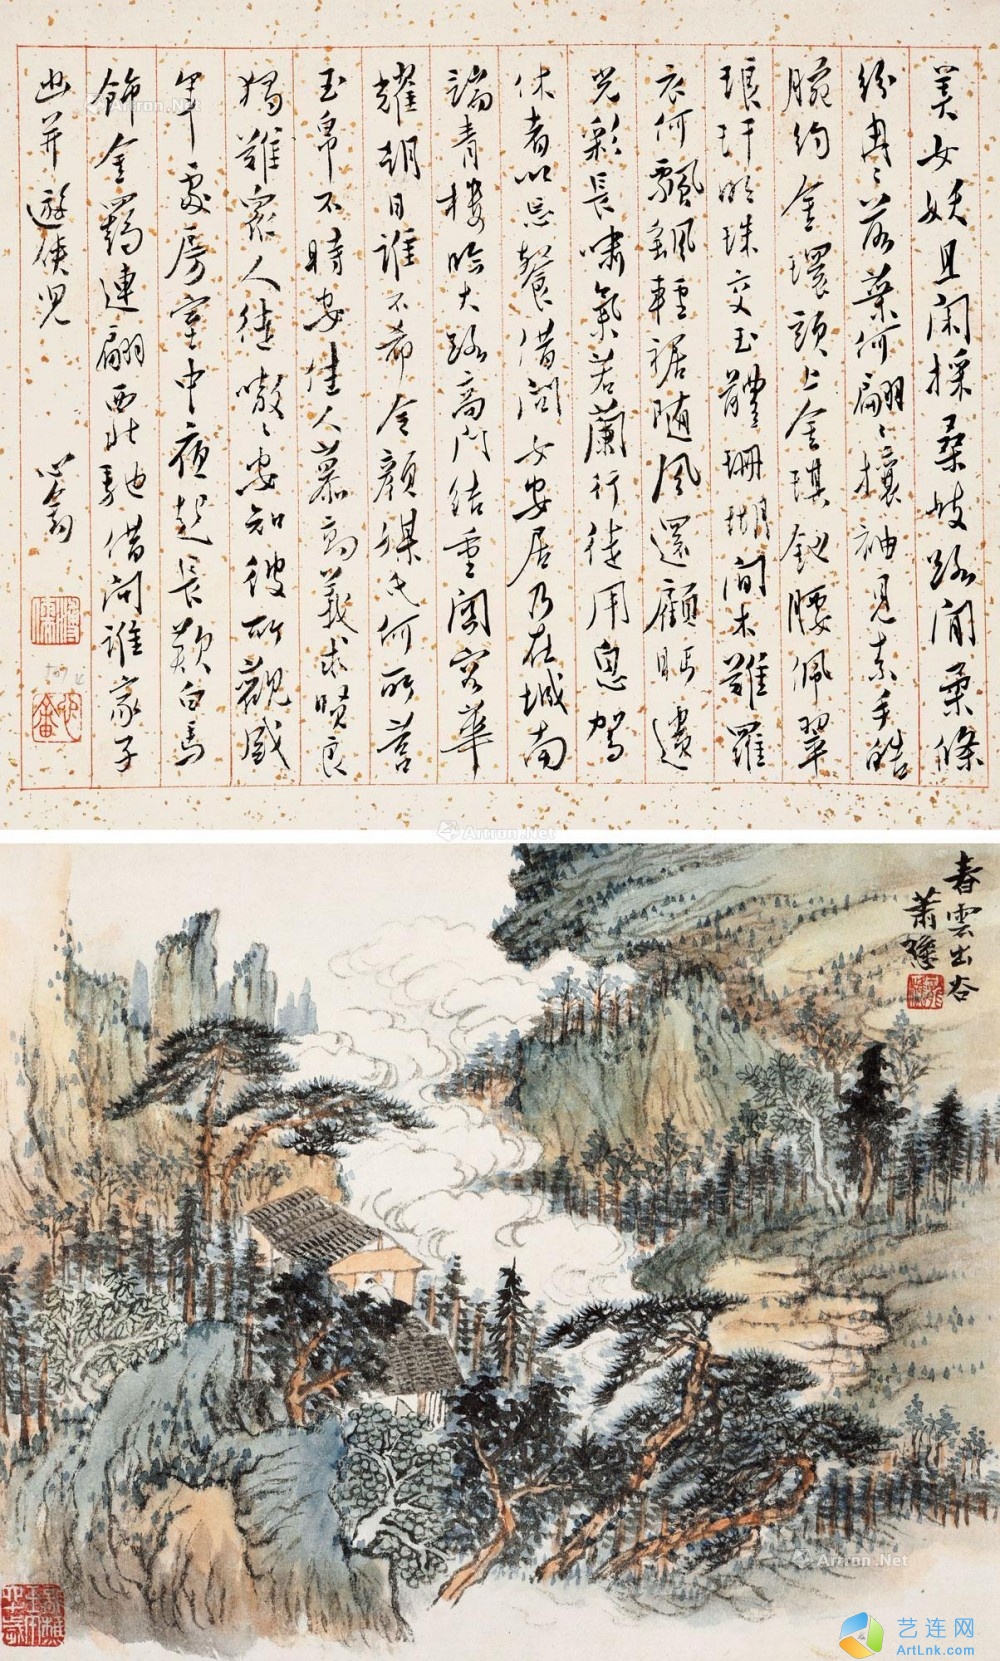 美女妖且閑採桑岐路間柔條
紛冉〻落葉何翩〻攘袖見素手皓
腕約金環頭上金琪釵腰佩翠
琅玕明珠交玉體珊瑚間木難羅
衣何飄飖輕裾随風還顧眄遺
光彩長嘯氣若蘭行徒用息駕
休者以忘餐借問女安居乃在城南
端青樓臨大路高門結重関容華
耀朝日誰不希令顏媒氏何所營
玉帛不時安佳人慕高義求賢良
獨難衆人徒嗷〻安知彼所觀盛
年處房室中夜起長歎白馬
飾金羈連翩西北馳借問誰家子
幽并遊俠兒 心畬
溥儒
心畬
Artron.Net
Artron.Net
Artron.Net
Artron.Net
春雲出谷
蕭愻
Artron.Net
艺连网
ArtLnk.com